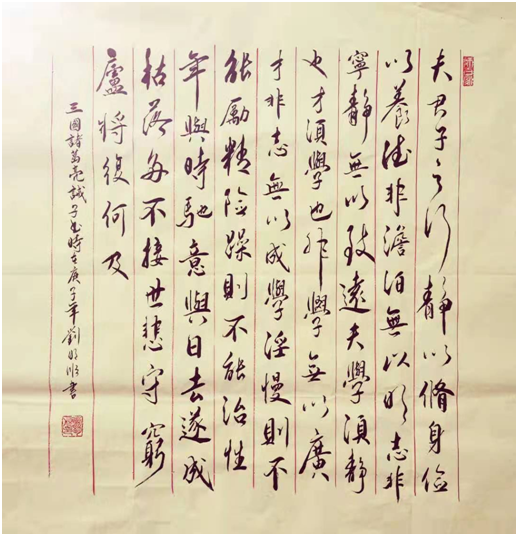 夫君子之行靜以脩身儉
以養德非澹泊無以明志非
寧靜無以致遠夫學須靜
也才須學也非學無以廣
才非志無以成學淫慢則不
能勵精險躁則不能治性
年與時馳意與日去遂成
枯落多不接世悲守窮
廬將復何及
三國諸葛亮誡子書時在庚子年劉書